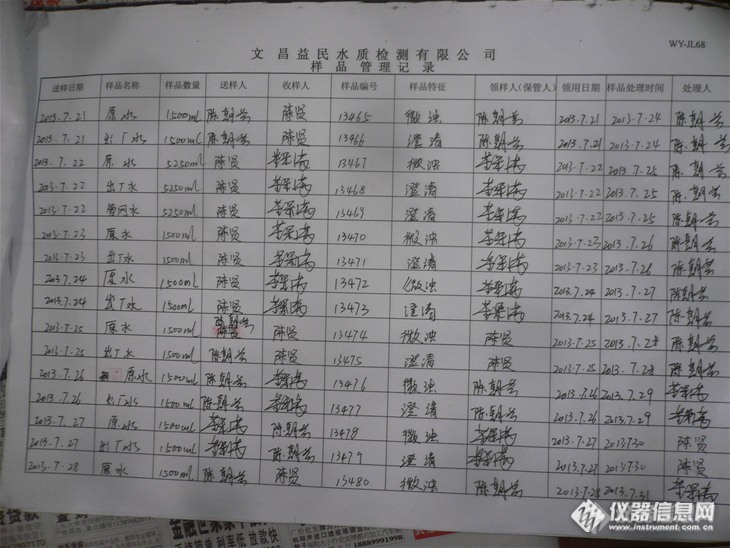 WY-JL68
文昌益民水质检测有限公司
样品管理记录
送样日期 样品名称 样品数量 送样人 收样人 样品编号 样品特征 领样人(保管人) 领用日期 样品处理时间 处理人
2013.7.21 原水 1500ml 陈朝芸 陈贤 13465 微浊 陈朝芸 2013.7.21 2013.7.24 陈朝芸
2013.7.21 出厂水 1500ml 陈朝芸 陈贤 13466 澄清 陈朝芸 2013.7.21 2013.7.24 陈朝芸
2013.7.22 原水 5250ml 陈贤 13467 微浊 2013.7.22 2013.7.25 陈朝芸
2013.7.22 出厂水 5250ml 陈贤 13468 澄清 2013.7.22 2013.7.25 陈朝芸
2013.7.22 管网水 5250ml 陈贤 13469 澄清 2013.7.22 2013.7.25 陈朝芸
2013.7.23 原水 1500ml 陈贤 13470 微浊 2013.7.23 2013.7.26 陈朝芸
2013.7.23 出厂水 1500ml 陈贤 13471 澄清 2013.7.23 2013.7.26 陈朝芸
2013.7.24 原水 1500ml 陈贤 13472 微浊 2013.7.24 2013.7.27 陈朝芸
2013.7.24 出厂水 1500ml 陈贤 13473 澄清 2013.7.24 2013.7.27 陈朝芸
2013.7.25 原水 1500ml 陈朝芸 陈贤 13474 微浊 陈贤 2013.7.25 2013.7.28 陈朝芸
2013.7.25 出厂水 1500ml 陈朝芸 陈贤 13475 澄清 陈贤 2013.7.25 2013.7.28 陈朝芸
2013.7.26 原水 1500ml 陈朝芸 13476 微浊 陈朝芸 2013.7.26 2013.7.29
2013.7.26 出厂水 1500ml 陈朝芸 13477 澄清 陈朝芸 2013.7.26 2013.7.29
2013.7.27 原水 1500ml 陈朝芸 13478 微浊 2013.7.27 2013.7.30 陈贤
2013.7.27 出厂水 1500ml 陈朝芸 13479 澄清 2013.7.27 2013.7.30 陈贤
2013.7.28 原水 1500ml 陈朝芸 陈贤 13480 微浊 陈朝芸 2013.7.28 2013.7.31
18889991998
仪器信息网
www.instrument.com.cn